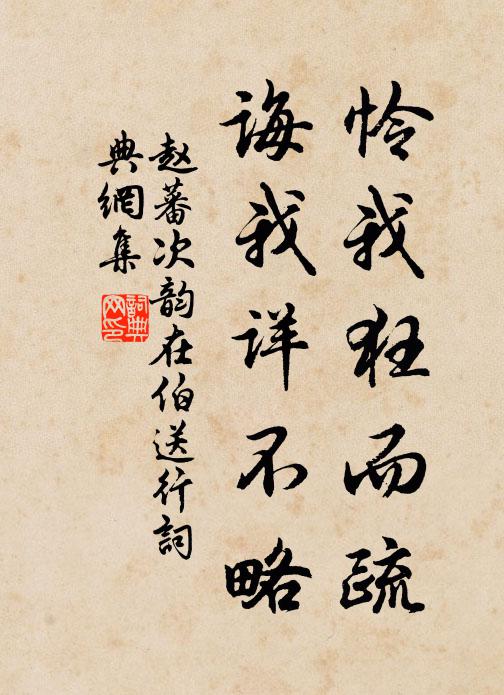 怜我狂而疏
诲我详不略
赵蕃次韵在伯送行词
典網集
詞典網印